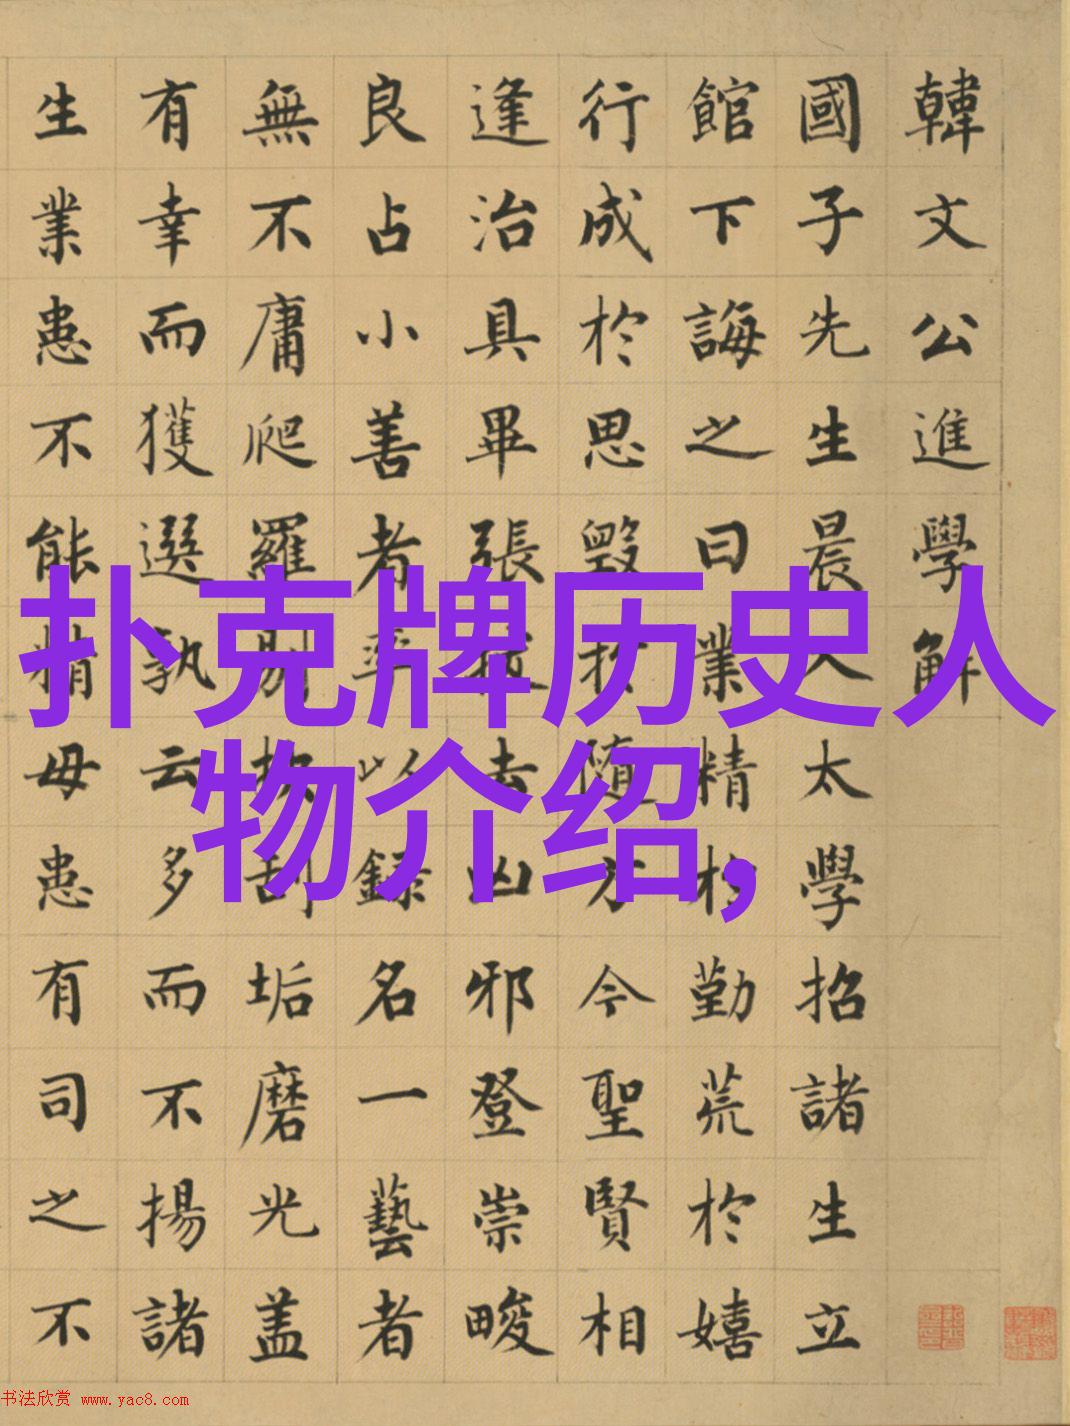 韓文公進學解
國子先生晨入太學招諸生立
館下誨之曰業精於勤荒於嬉
行成於思毀於随方今聖賢相
逢治具畢張拔去凶邪登崇畯
良占小善者率以錄名一藝者
無不庸爬羅剔抉刮垢磨光盖
有幸而獲選孰云多而不揚諸
生業患不能精毋患有司之不
扑克牌历史人
物介绍,
书法欣赏 www.yac8.com